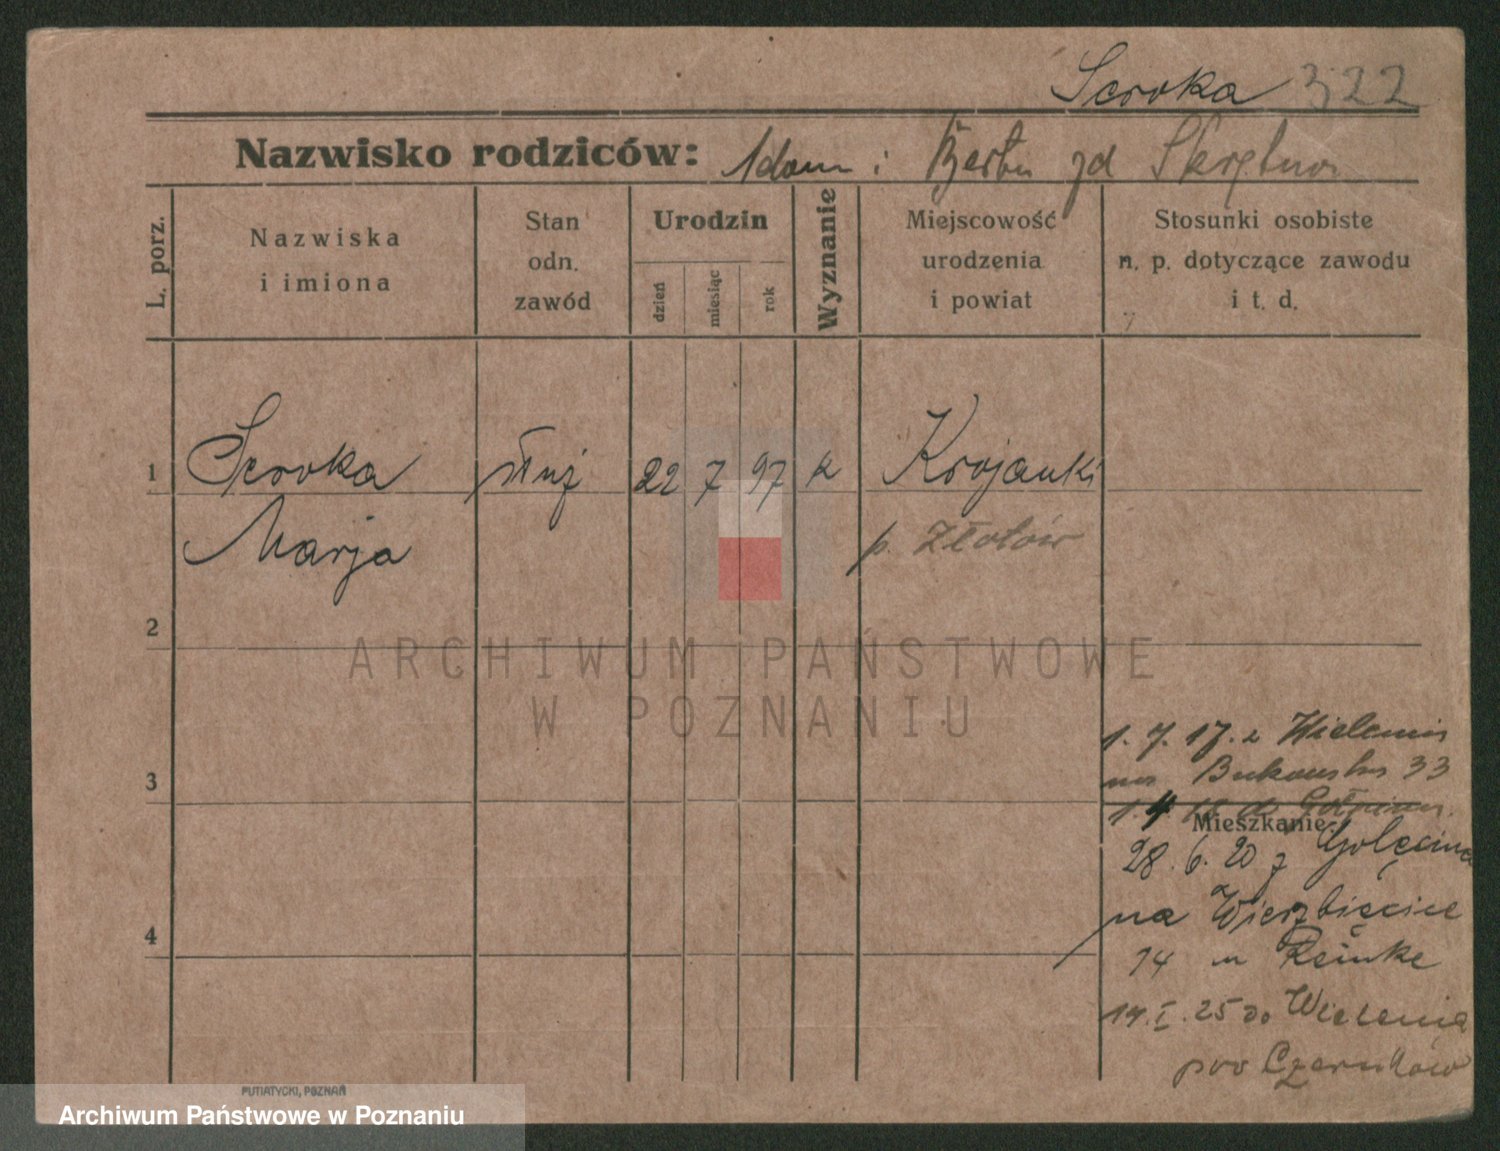 Seroka 322
Nazwisko rodziców: Adam i Berta zd
L. porz.
Nazwiska
i imiona
Stan
odn.
zawód
Urodzin
dzień
miesiąc
rok
Wyznanie
Miejscowość
urodzenia
i powiat
Stosunki osobiste
n. p. dotyczące zawodu
i t. d.
1 Seroka służ 22 7 97 k Krojanki
Marja p. Złotów
2
ARCHIWUM PAŃSTWOWE
W POZNANIU
1. 7. 17. z Wielenia
3 na Bukowska 33
Mieszkanie:
28. 6. 20 z Golęcina
na Wierzbięcice
4
14 u Reinke
14. I. 25 do Wielenia
pow Czarnków
PUTIATYCKI, POZNAŃ
Archiwum Państwowe w Poznaniu